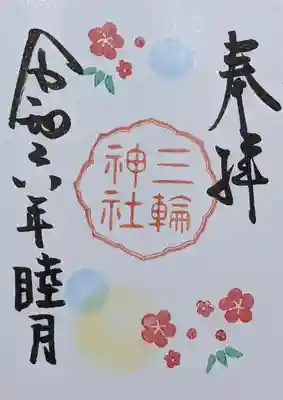 奉拝
三輪
神社
令和六年睦月